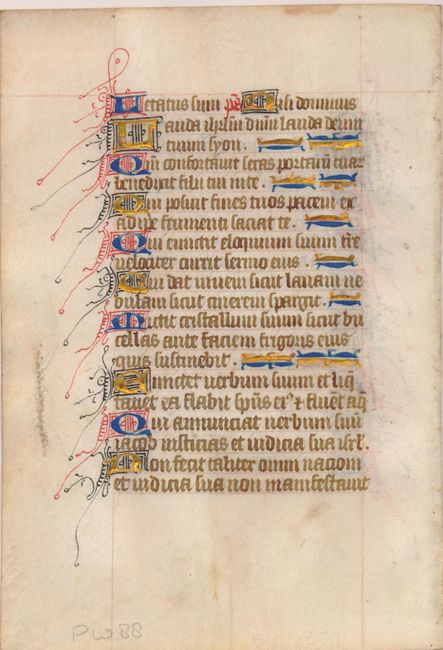 Letatus sum ps Nisi dominus
Lauda ihrlm dnm lauda deum
tuum syon.
Qm confortauit seras portarum tuar
benedixit filii tui in te.
Qui posuit fines tuos pacem et
adipe frumenti saciat te.
Qui emittit eloquium suum tre
uelociter currit sermo eius.
Qui dat niuem sicut lanam ne
bulam sicut cinerem spargit.
Mittit cristallum suum sicut bu
cellas ante faciem frigoris eius
quis sustinebit.
Emittet uerbum suum et liq
faciet ea flabit spus eius & fluent aq
Qui annunciat uerbum suu
iacob iusticias et iudicia sua isrl.
Non fecit taliter omni nacioni
et iudicia sua non manifestauit
PW88